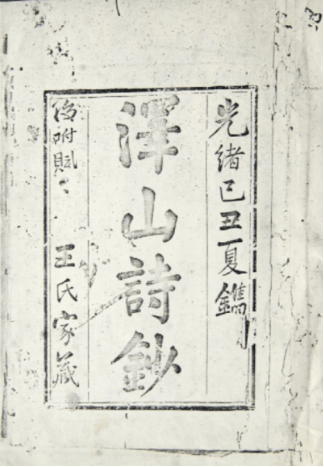 光緒己丑夏鐫
澤山詩鈔
後附賦
王氏家藏